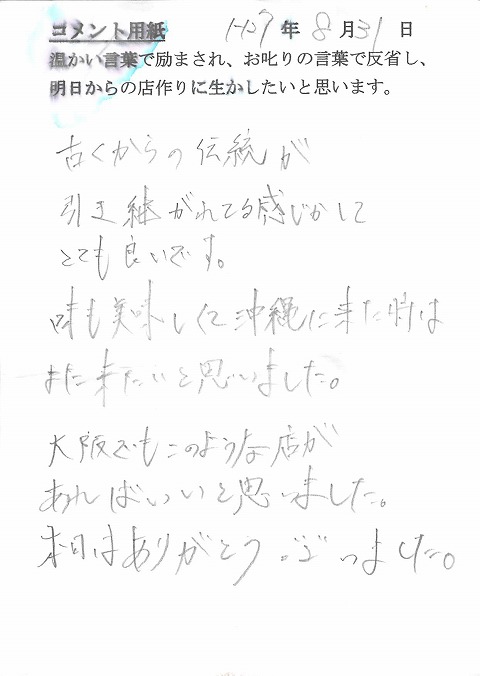 コメント用紙 年 8月31日
温かい言葉で励まされ、お叱りの言葉で反省し、
明日からの店作りに生かしたいと思います。
古くからの伝統が
引き継がれてる感じがして
とても良いです。
味も美味しくて沖縄に来た時は
また来たいと思いました。
大阪でもこのような店が
あればいいと思いました。
本日はありがとうございました。